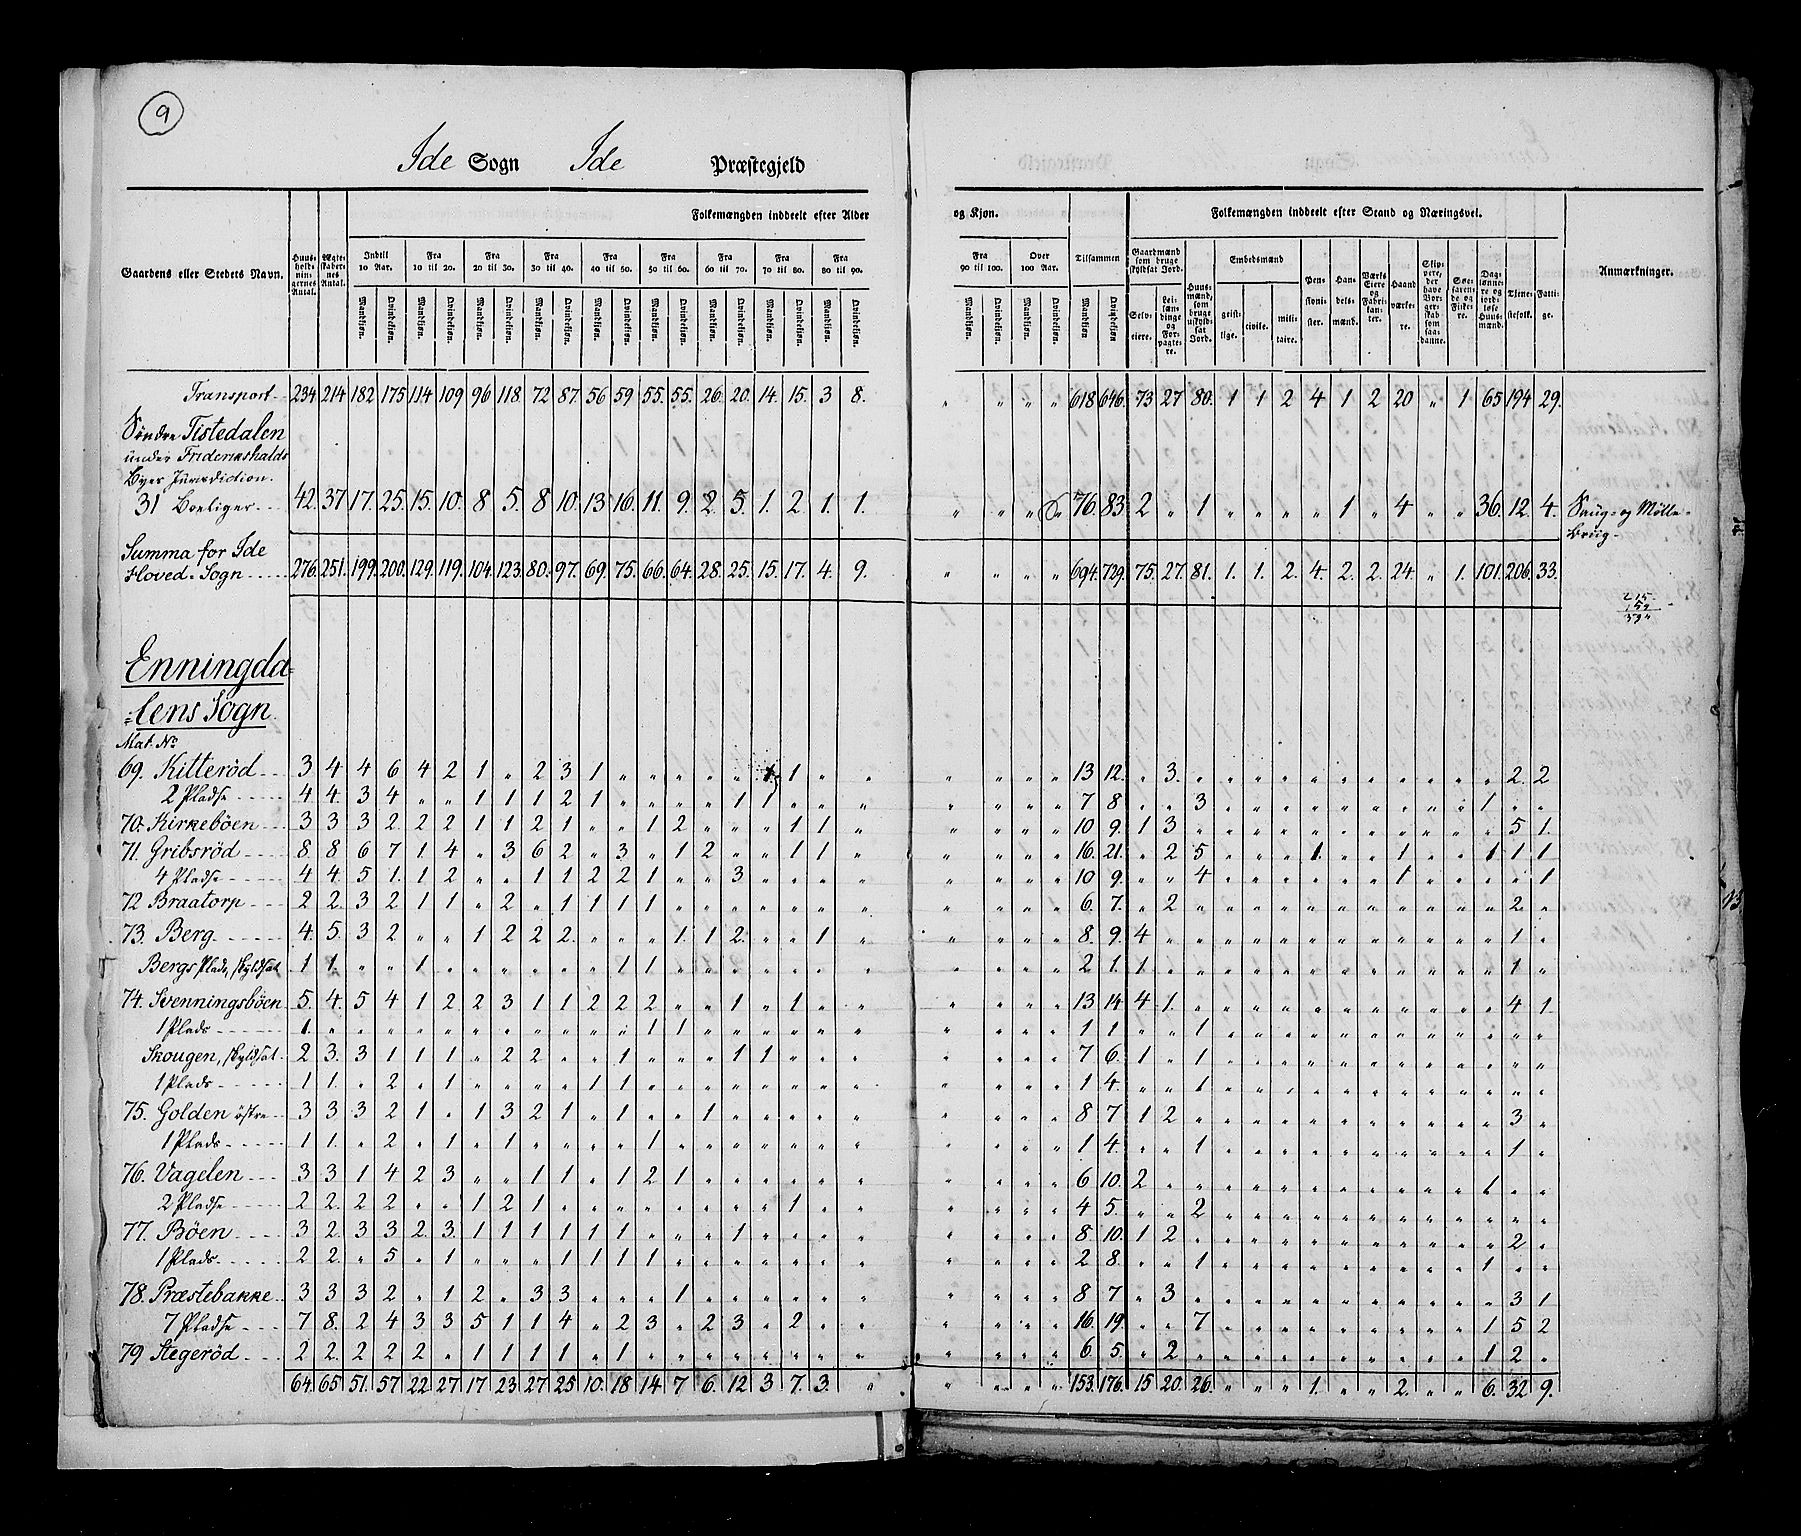 9
Ide Sogn Ide Præstegjeld
Gaardens eller Stedets Navn. Huusholdningernes Antal. Ægteskabernes Antal. Folkemængden inddeelt efter Alder og Kjøn. Folkemængden inddeelt efter Stand og Næringsvei. Anmærkninger.
Indtil 10 Aar. Fra 10 til 20. Fra 20 til 30. Fra 30 til 40. Fra 40 til 50. Fra 50 til 60. Fra 60 til 70. Fra 70 til 80. Fra 80 til 90. Fra 90 til 100. Over 100 Aar. Tilsammen
Mandkiøn. Qvindekiøn. Mandkiøn. Qvindekiøn. Mandkiøn. Qvindekiøn. Mandkiøn. Qvindekiøn. Mandkiøn. Qvindekiøn. Mandkiøn. Qvindekiøn. Mandkiøn. Qvindekiøn. Mandkiøn. Qvindekiøn. Mandkiøn. Qvindekiøn. Mandkiøn. Qvindekiøn. Mandkiøn. Qvindekiøn. Mandkiøn Qvindekiøn
Gaardmænd som bruge skyldsat Jord. Selveiere. Leilændinge og Forpagtere. Huusmænd, som bruge uskyldsat Jord. Embedsmænd geistlige. civile. militaire. Pensionister. Handelsmænd. Værks Eiere og Fabrikanter. Haandværkere. Skippere, der have Borgerskab som saadanne. Søefarende og Fiskere. Daglønnere og jordløse Huusmænd. Tienestefolk. Fattige.
Transport 234 214 182 175 114 109 96 118 72 87 56 59 55 55 26 20 14 15 3 8. „ „ „ „ 618 646 73 27 80. 1 1 2 4 1 2 20 „ 1 65 194 29.
Søndre Tistedalen
under Fridericshalds
Byes Jurisdiction.
31 Boeliger 42. 37 17. 25. 15. 10. 8 5. 8 10. 13 16. 11. 9. 2. 5. 1. 2 1. 1. „ „ „ „ 76. 83. 2 „ 1 „ „ „ „ 1 „ 4 „ „ 36. 12. 4. Saug- og Mølle-
Brug
Summa for Ide
Hoved-Sogn 276. 251. 199. 200. 129. 119. 104. 123. 80. 97. 69. 75. 66. 64. 28. 25. 15. 17. 4. 9. „ „ „ „ 694. 729. 75. 27. 81. 1. 1. 2. 4. 2. 2. 24. „ 1. 101. 206. 33.
Enningda-
-lens Sogn.
Mat. No
69. Kitterød 3 4 4 6 4 2 1 „ 2 3 1 „ „ „ „ „ 1 1 „ „ „ „ „ „ 13 12. „ 3. „ „ „ „ „ „ „ „ „ „ „ 2. 2
2 Pladse 4 4. 3 4 „ „ 1 1 1 2 1 „ „ „ „ 1 1 „ „ „ „ „ „ „ 7 8 „ „ 3 „ „ „ „ „ „ „ „ „ 1 „ „
70. Kirkebøen 3 3 3 2 2 2 1 1 2 1 „ „ 1 2 „ „ „ 1 1 „ „ „ „ „ 10 9. 1 3 „ „ „ „ „ „ „ „ „ „ „ 5 1.
71. Gribsrød 8. 8 6 7 1. 4 „ 3 6 2 „ 3 „ 1 2 „ „ 1 1 „ „ „ „ „ 16. 21. „ 2 5 „ „ „ 1. „ „ 1 „ „ 1 1 1
4 Pladse 4 4. 5 1. 1 2 „ „ 1 1 2 2 1 „ „ 3 „ „ „ „ „ „ „ „ 10 9. „ „ 4 „ „ „ „ „ „ 1 „ „ „ „ 1
72 Braatorp 2 2. 3 2 1 1 „ 2 „ 1 1 1 1 „ „ „ „ „ „ „ „ „ „ „ 6. 7. „ 2 „ „ „ „ „ „ „ „ „ „ „ 2 „
73. Berg 4. 5. 3 2 „ „ 1 2 2 2. „ „ „ 1. 1 2. „ „ 1 „ „ „ „ „ 8. 9. 4 „ „ „ „ „ „ „ „ „ „ „ „ 1 „
Bergs Plads, skyldsat 1 1. „ „ 1 „ „ „ „ „ „ 1 1 „ „ „ „ „ „ „ „ „ „ „ 2 1. 1 „ „ „ „ „ „ „ „ „ „ „ „ 1 „
74. Svenningsbøen 5. 4. 5 4 1 2 2 3 1 1 2 2 2 „ „ 1 „ 1 „ „ „ „ „ „ 13 14 4 1. „ „ „ „ „ „ „ „ „ „ „ 4 1
1 Plads 1. „ „ „ „ „ „ „ „ „ „ „ 1 1 „ „ „ „ „ „ „ „ „ „ 1 1 „ „ 1 „ „ „ „ „ „ „ „ „ „ „ „
Skougen, skyldsat 2 3. 3 1 1 1 „ 2 2 „ „ 1 „ „ „ 1 1 „ „ „ „ „ „ „ 7 6. 1 „ 1 „ „ „ „ „ „ „ „ „ „ „ „
1 Plads 1 1. „ 2 „ 1 „ „ „ „ 1 1 „ „ „ „ „ „ „ „ „ „ „ „ 1 4. „ „ 1 „ „ „ „ „ „ „ „ „ „ „ „
75. Golden østre 3 3 3 2 1 „ 1 3 2 1 „ 1 „ „ 1 „ „ „ „ „ „ „ „ „ 8 7 1 2 „ „ „ „ „ „ „ „ „ „ „ 3 „
1 Plads 1 1. „ 2 „ 1 „ 1 „ „ „ „ 1 „ „ „ „ „ „ „ „ „ „ „ 1 4. „ „ 1 „ „ „ „ „ „ „ „ „ „ 1 „
76. Vagelen 3 3 1 4 2 3 „ „ 1 1 „ 1 2 1 „ „ „ „ „ „ „ „ „ „ 6 10. 2 „ „ „ „ „ „ „ „ „ „ „ 1 „ „
2 Pladse 2 2. 2 2 „ „ 1 2 1 „ „ „ „ „ „ „ „ 1 „ „ „ „ „ „ 4 5. „ „ 2 „ „ „ „ „ „ „ „ „ „ „ „
77. Bøen 3 2. 3 3 2. 3. 1 1 1 1 1 1 „ „ „ 1 „ „ „ „ „ „ „ „ 8 10. 1 2 „ „ „ „ „ „ „ „ „ „ „ 2 „
1 Plads 2 2. „ 5 „ 1 „ „ „ 1 1 1 1 „ „ „ „ „ „ „ „ „ „ „ 2 8. „ „ 1 „ „ „ „ „ „ „ „ „ 1 „ „
78. Præstebakke 3 3 3 2 „ 1 2 „ 3 3 „ „ „ 1 „ „ „ „ „ „ „ „ „ „ 8 7 „ 3 „ „ „ „ „ „ „ „ „ „ „ 3 1
7 Pladse 7 8. 2 4 3 3 5 1 1 4 „ 2 3 „ 2 3 „ 2 „ „ „ „ „ „ 16. 19. „ „ 7 „ „ „ „ „ „ „ „ „ 1 5 2
79 Stegerød 2 2. 2 2 2 „ 1 1 1 1 „ 1 „ „ „ „ „ „ „ „ „ „ „ „ 6. 5. „ 2 „ „ „ „ „ „ „ „ „ „ 1 2 „
64. 65 51. 57 22 27 17 23 27 25 10. 18 14 7 6. 12 3 7. 3. „ „ „ „ „ 153. 176. 15 20. 26. „ „ „ 1. „ „ 2. „ „ 6. 32 9.